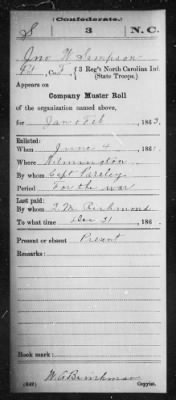 (Confederate.)
S 3 N.C.
Jno W. Simpson
Pt, Co. F, 3 Reg't North Carolina Inf.
(State Troops.)
Appears on
Company Muster Roll
of the organization named above,
for Jan & Feb, 1863.
Enlisted:
When June 4, 186
Where Wilmington
By whom Capt Parsley
Period For the war
Last paid:
By whom Richmond
To what time Dec 31, 186
Present or absent Present
Remarks:
Book mark:
(642) Copyist.